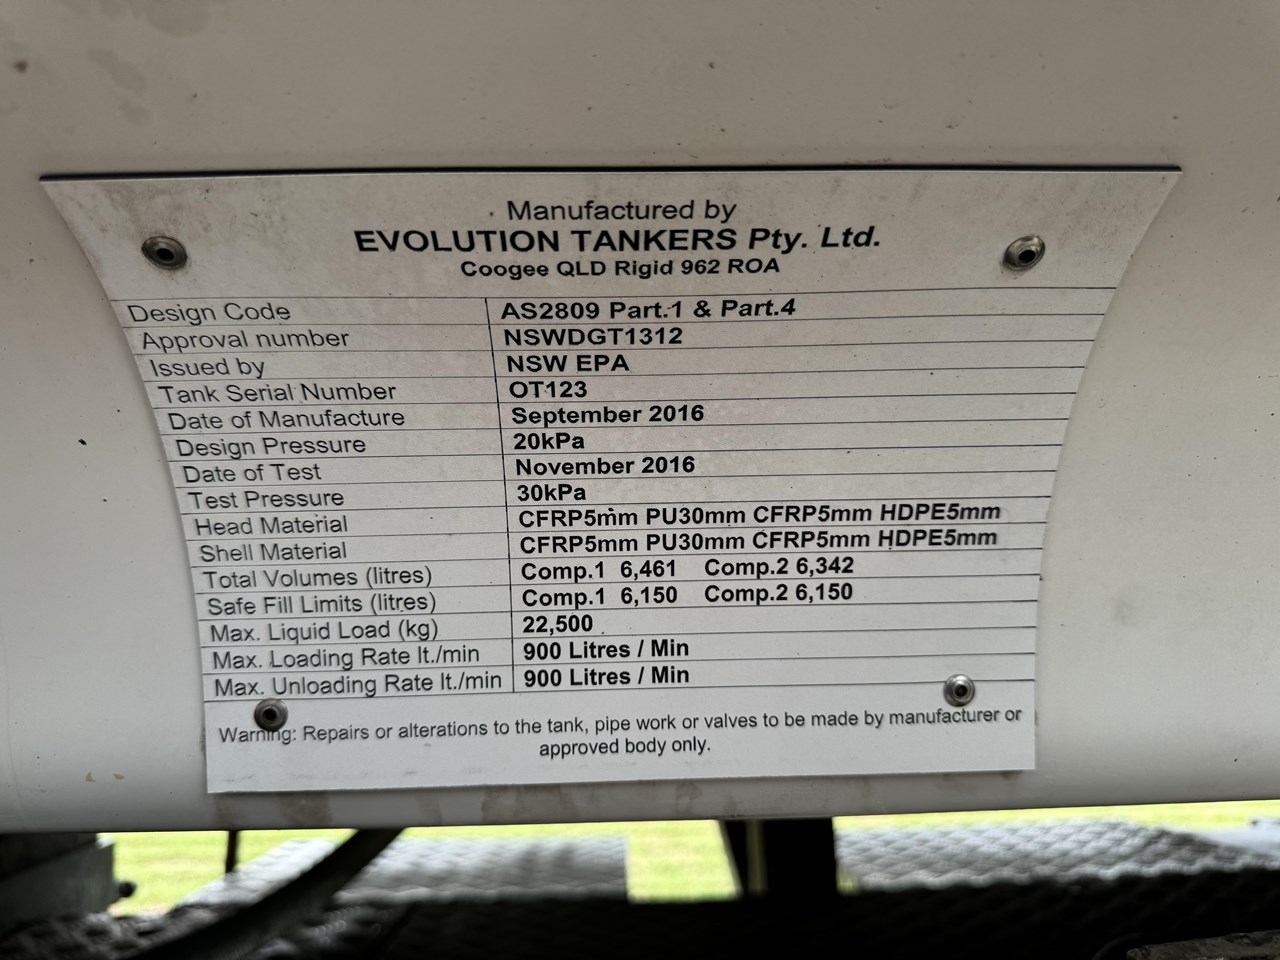 Manufactured by
EVOLUTION TANKERS Pty. Ltd.
Coogee QLD Rigid 962 ROA
Design Code AS2809 Part.1 & Part.4
Approval number NSWDGT1312
Issued by NSW EPA
Tank Serial Number OT123
Date of Manufacture September 2016
Design Pressure 20kPa
Date of Test November 2016
Test Pressure 30kPa
Head Material CFRP5mm PU30mm CFRP5mm HDPE5mm
Shell Material CFRP5mm PU30mm CFRP5mm HDPE5mm
Total Volumes (litres) Comp.1 6,461 Comp.2 6,342
Safe Fill Limits (litres) Comp.1 6,150 Comp.2 6,150
Max. Liquid Load (kg) 22,500
Max. Loading Rate lt./min 900 Litres / Min
Max. Unloading Rate lt./min 900 Litres / Min
Warning: Repairs or alterations to the tank, pipe work or valves to be made by manufacturer or
approved body only.